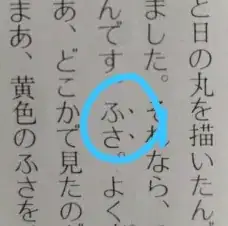 と日の丸を描いたん
ました。それなら、
んです。ふさ。よく
あ、どこかで見たの
まあ、黄色のふさを